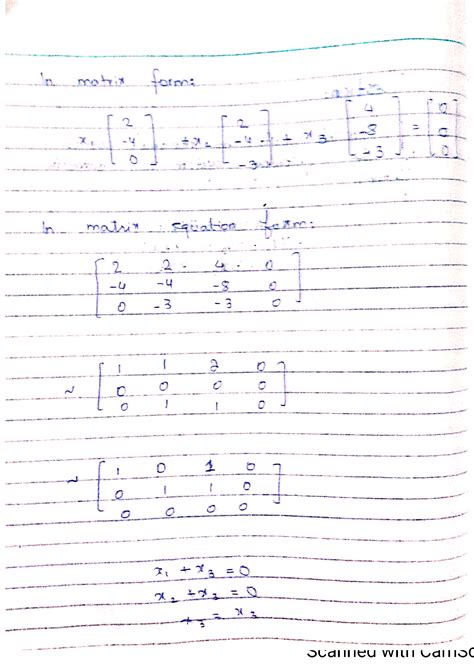 In matrix form:
x₁ [2 -4 0] + x₂ [2 -4 -3] + x₃ [4 -8 -3] = [0 0 0]
In matrix equation form:
[2 2 4 0
-4 -4 -8 0
0 -3 -3 0]
~ [1 1 2 0
0 0 0 0
0 1 1 0]
~ [1 0 1 0
0 1 1 0
0 0 0 0]
x₁ + x₃ = 0
x₂ + x₃ = 0
x₃ = x₃
Scanned with CamSc